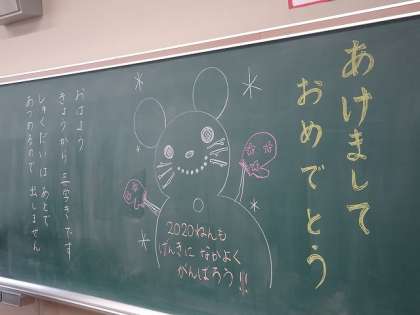 あけまして
おめでとう
2020ねんも
げんきに なかよく
がんばろう!!
おはよう
きょうから 三学きです
しゅくだいは あとで
あつめるので 出しません